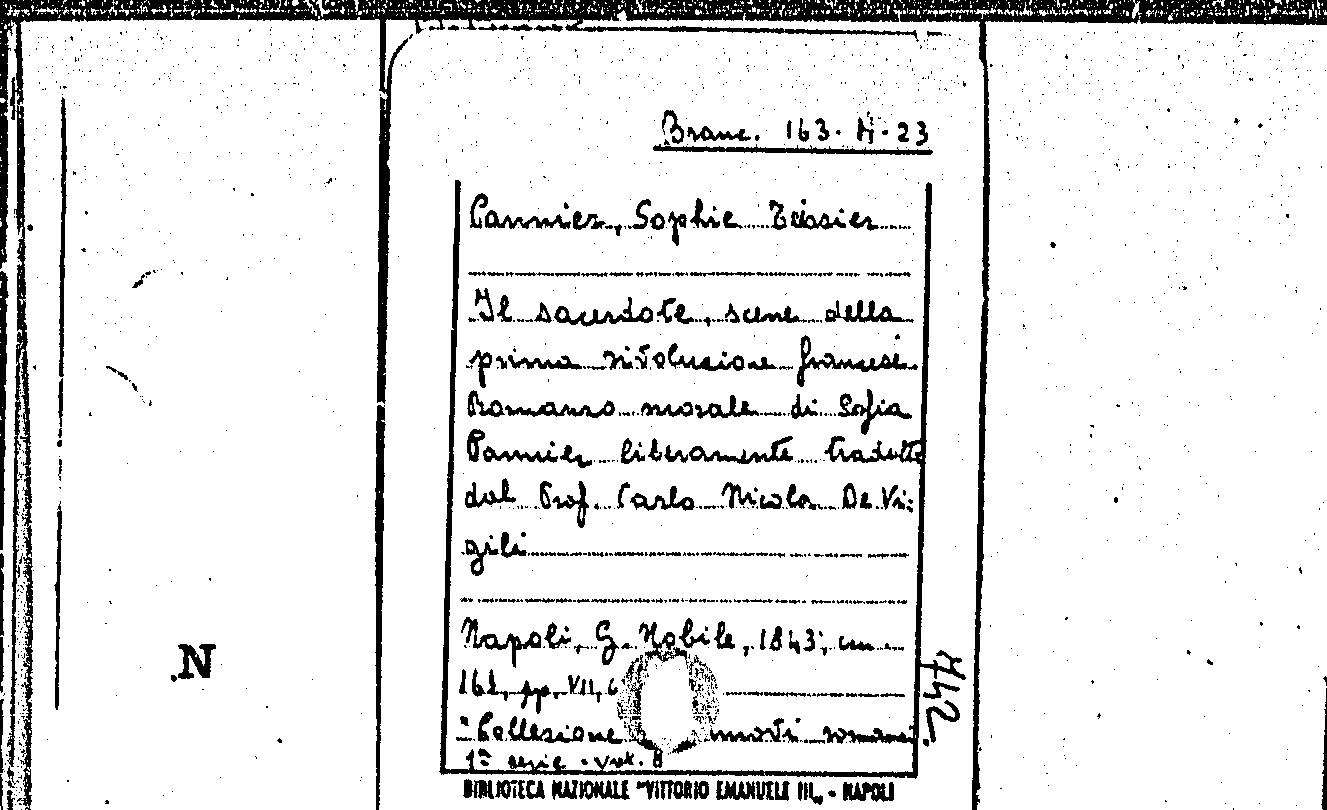 Branc. 163. H. 23
Pannier, Sophie Teissier
Il sacerdote, scene della
prima rivoluzione francese.
Romanzo morale di Sofia
Pannier liberamente tradotto
dal Prof. Carlo Nicola De Vir:
gili
Napoli, G. Nobile, 1843; cm
16⁝, pp. VII, 6
"Collezione nuovi romanzi
1ª serie - vol. 8
BIBLIOTECA NAZIONALE "VITTORIO EMANUELE III„ - NAPOLI
N
742